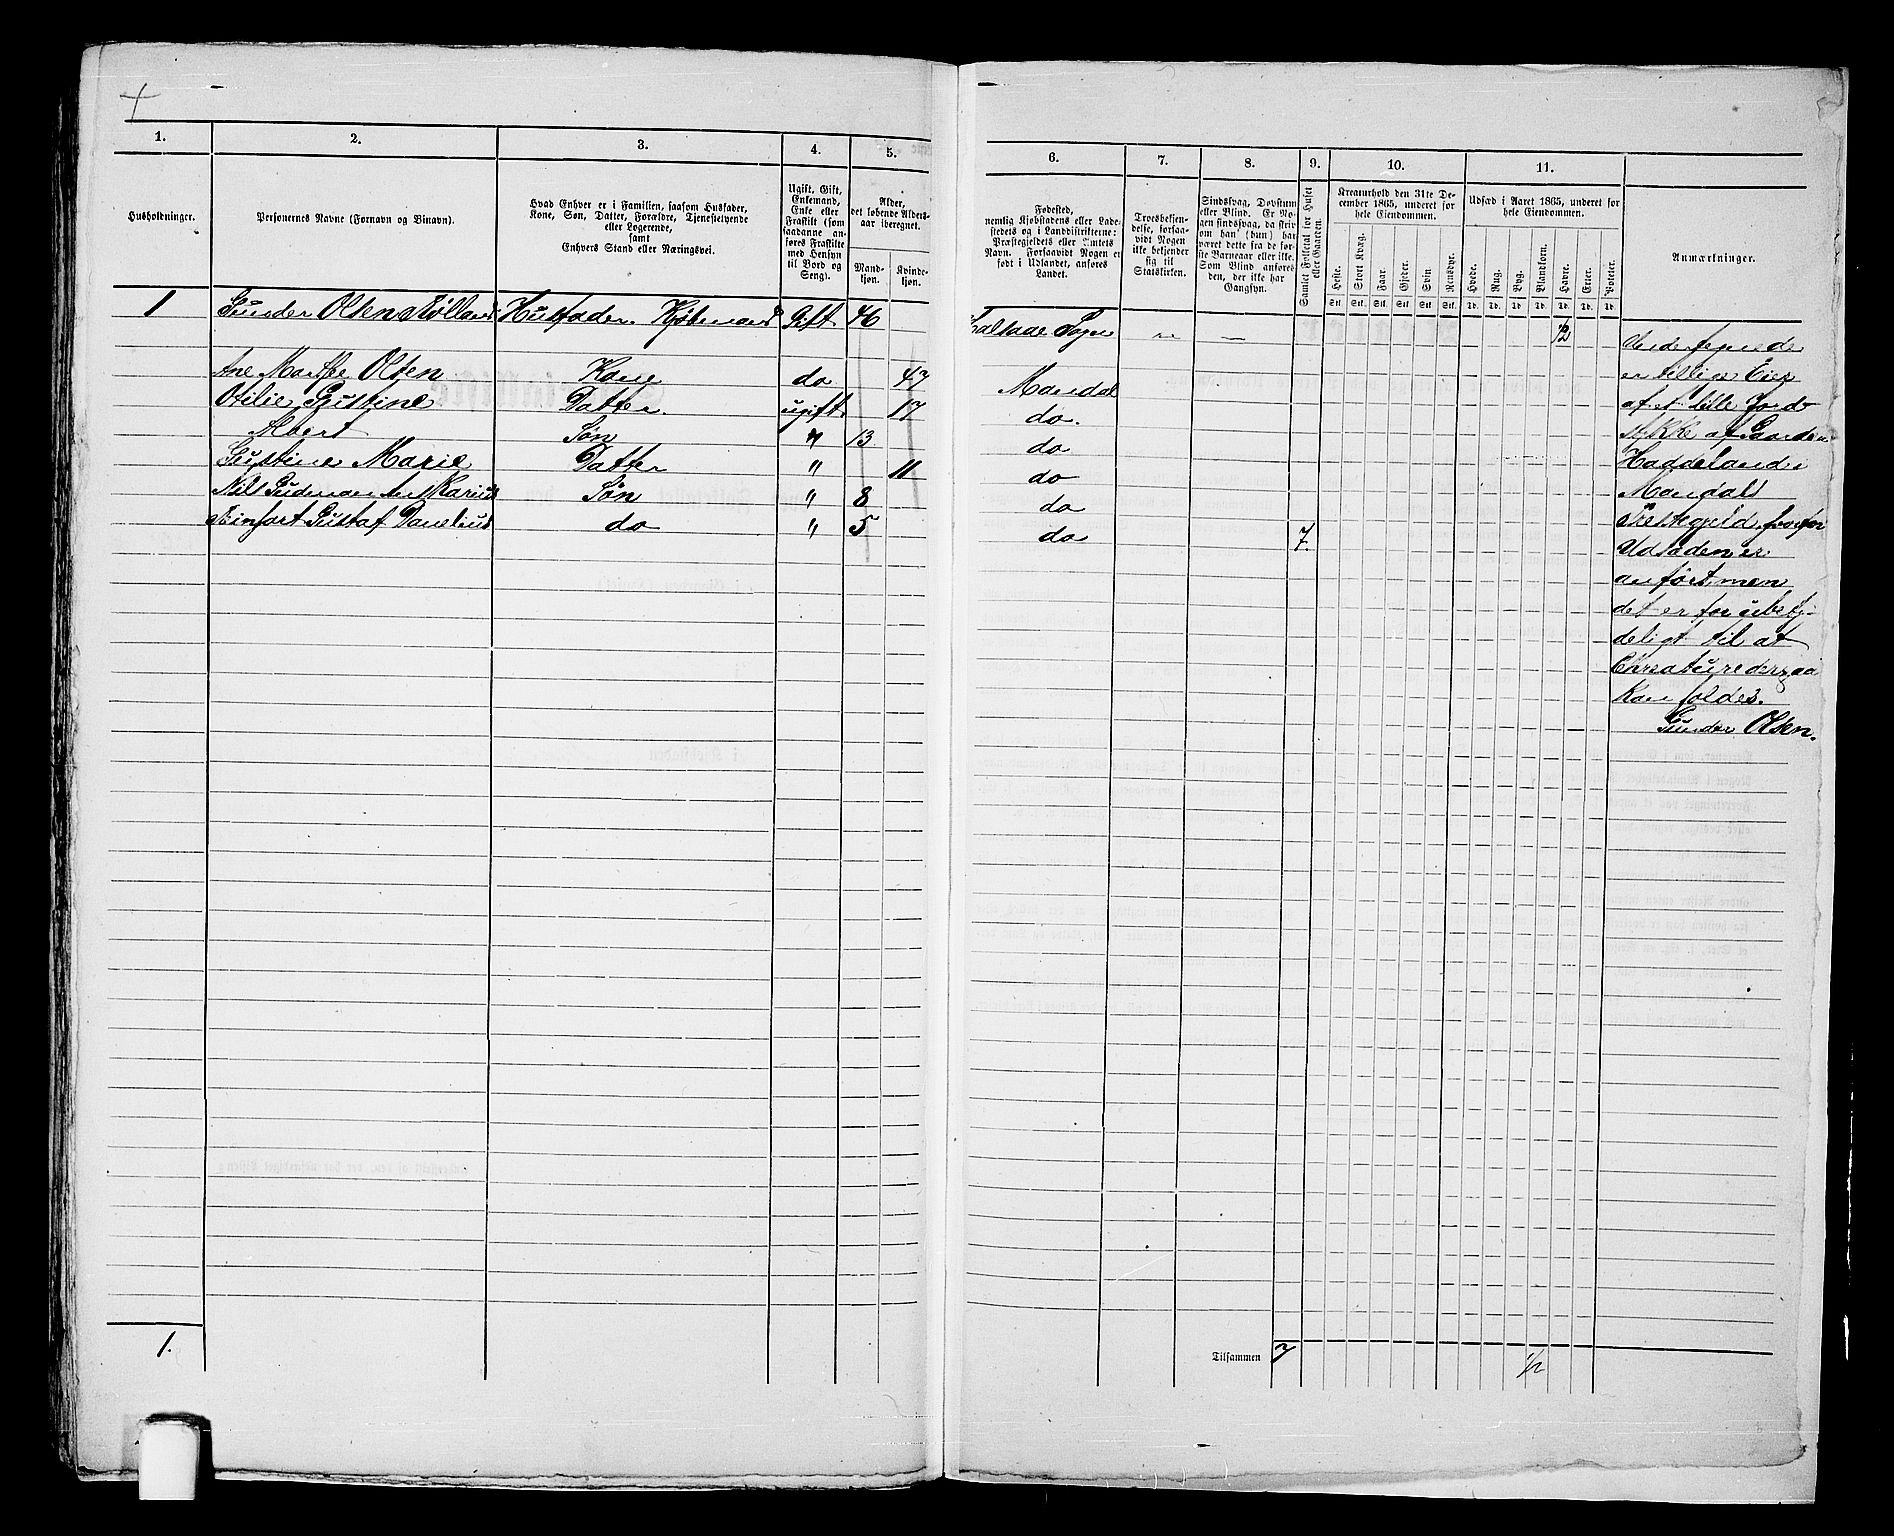 4
1.
2.
3.
4.
5.
Husholdninger.
Personernes Navne (Fornavn og Binavn).
Hvad Enhver er i Familien, saasom Husfader,
Kone, Søn, Datter, Forældre, Tjenestetyende
eller Logerende,
samt
Enhvers Stand eller Næringsvei.
Ugift, Gift,
Enkemand,
Enke eller
Fraskilt (som
saadanne an-
føres Fraskilte
med Hensyn
til Bord og
Seng).
Alder,
det løbende Alders-
aar iberegnet.
Mand-
kjøn.
Kvinde-
kjøn.
1 Gunder Olsen Husfader. Kjøbmand Gift 46
Ane Marthe Olsen Kone do 47
Otilie Gustine Datter. ugift 17
Albert Søn " 13
Gustine Marie Datter " 11
Nils Gudmander Karius Søn " 8
Gustaf Danelius do " 5
1.
6.
7.
8.
9.
10.
11.
Fødested,
nemlig Kjøbstadens eller Lade-
stedets og i Landdistrikterne:
Præstegjeldets eller Amtets
Navn. Forsaavidt Nogen er
født i Udlandet, anføres
Landet.
Troesbekjen-
delse, forsaa-
vidt Nogen
ikke bekjender
sig til
Statskirken.
Sindssvag, Døvstum
eller Blind. Er No-
gen sindssvag, da skri-
ves om han (hun) har
været dette fra de før-
ste Barneaar eller ikke.
Som Blind anføres
den, der ikke har
Gangsyn.
Samlet Folketal for Huset
eller Gaarden.
Kreaturhold den 31te De-
cember 1865, underet for
hele Eiendommen.
Heste.
Stort Kvæg.
Faar.
Gjeder.
Svin.
Rensdyr.
Stk. Stk. Stk. Stk. Stk. Stk.
Udsæd i Aaret 1865, underet for
hele Eiendommen.
Hvede.
Rug.
Byg.
Blandkorn.
Havre.
Erter.
Poteter.
Td. Td. Td. Td. Td. Td. Td.
Anmærkninger.
Sogn 1/2
Mandal
do.
do
do
do
do 7.
Undertegnede
er tillige Eier
af et lille Jord-
stykke af Gaarden
Haddeland i
Mandals
Præstegjeld, hvorfor
Udsæden er
anført, men
det er for ubety-
deligt til at
Creature derpaa
kan foldes.
Gunder Olsen.
Tilsammen 7 1/2